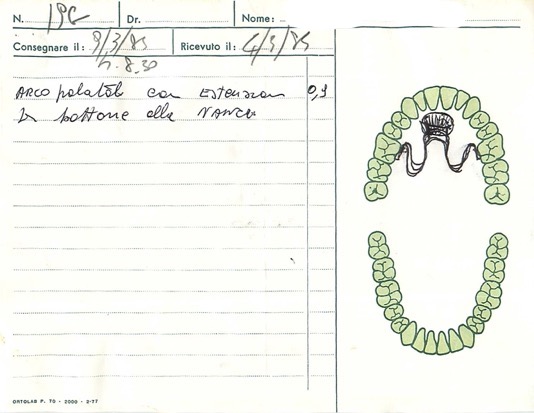 N. 196 Dr. Nome:
Consegnare il: 9/3/85 Ricevuto il: 4/3/85
h. 8.30
ARCO palatale con ESTENSION 0,9
bottone alla NANCE
ORTOLAB P. 70 - 2000 - 2-77